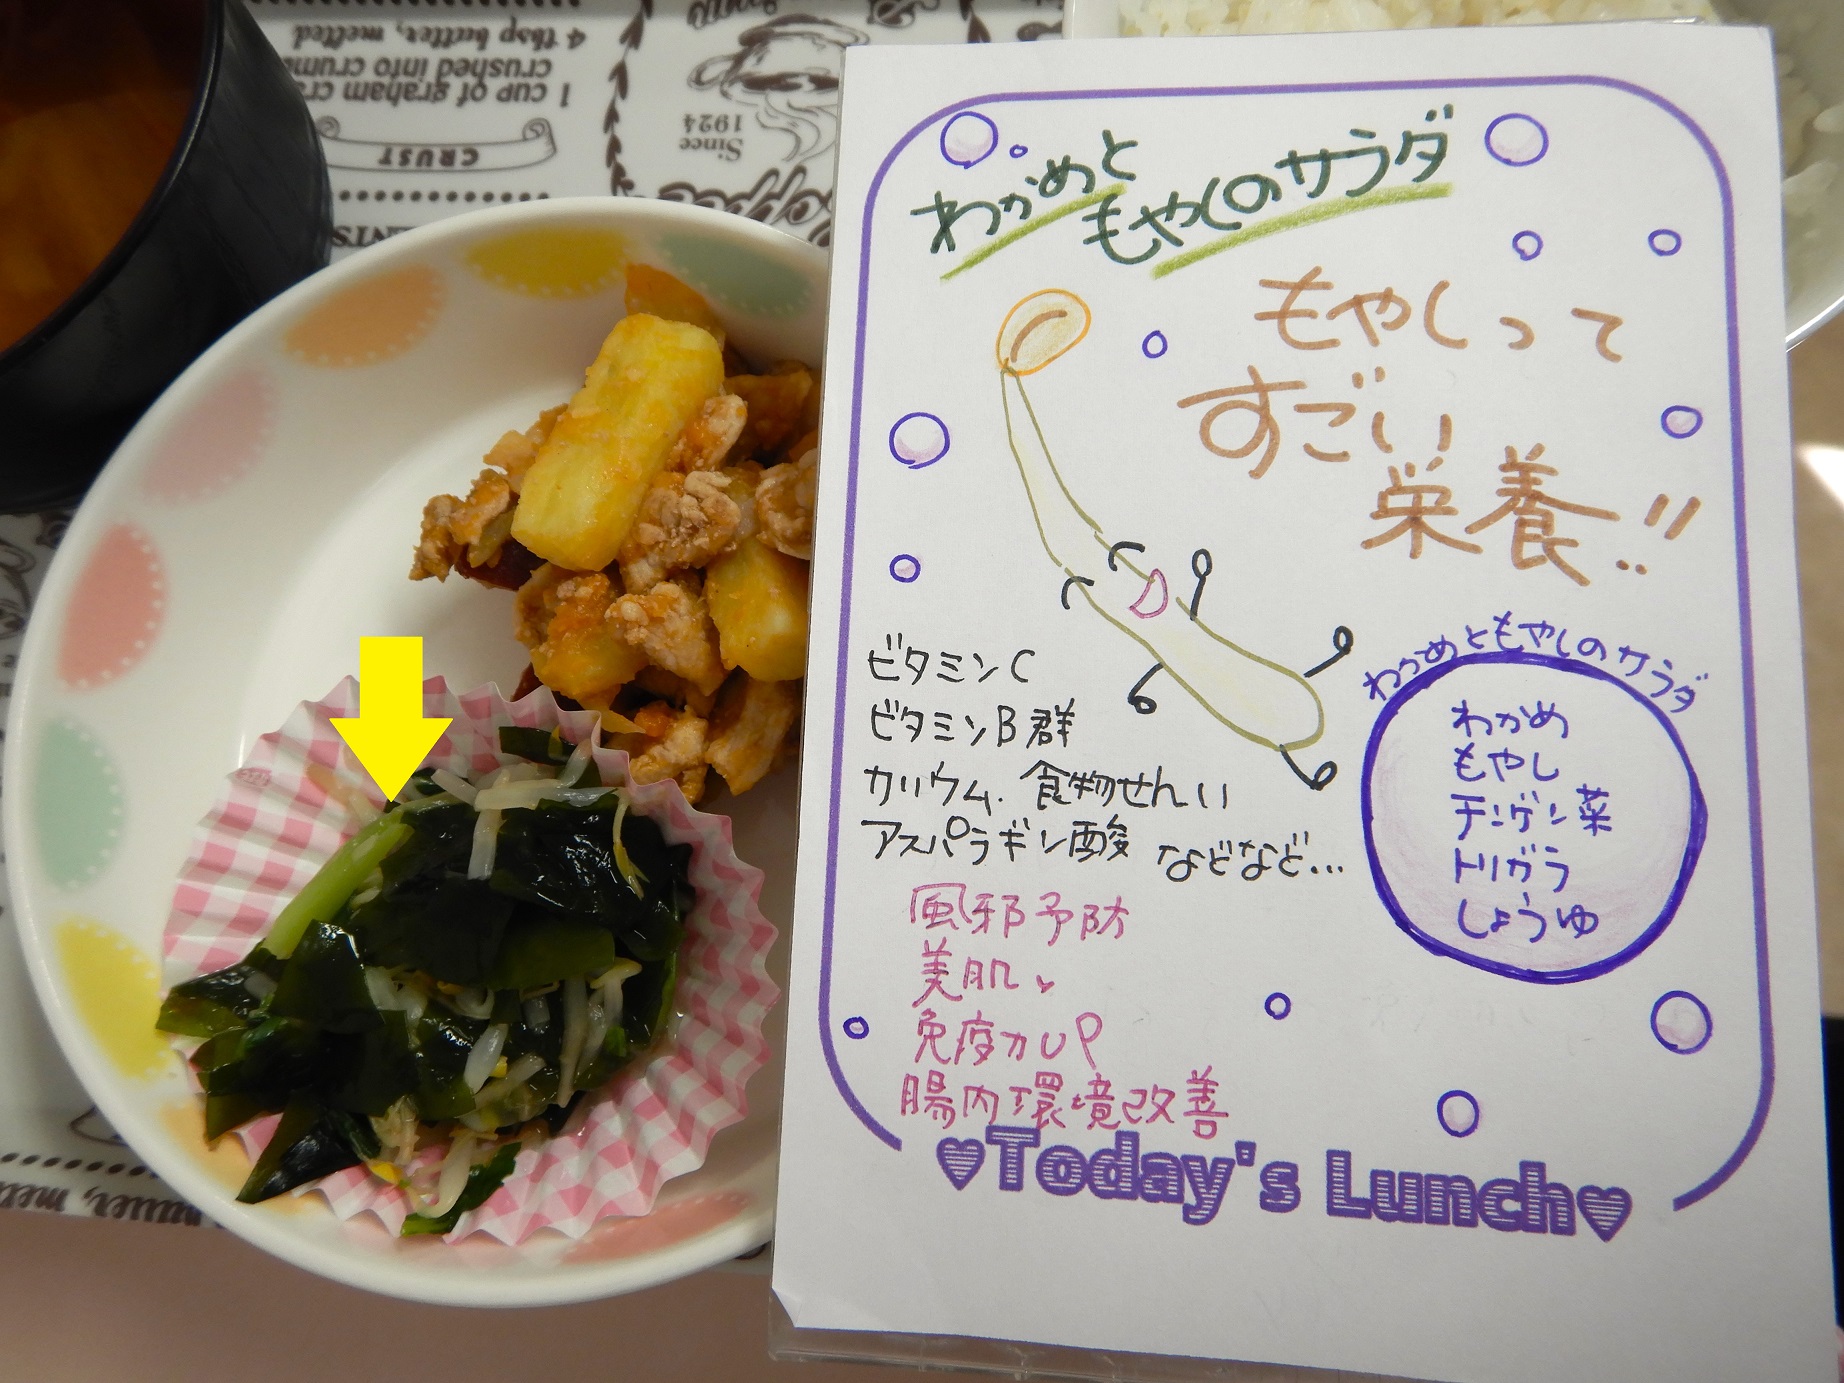 4 tbsp butter, melted
crushed into crumbs
1 cup of graham
CRUST
Since
1924
わかめと
もやしのサラダ
もやしって
すごい
栄養!!
ビタミンC
ビタミンB群
カリウム、食物せんい
アスパラギン酸 などなど…
風邪予防
美肌
免疫力UP
腸内環境改善
わかめともやしのサラダ
わかめ
もやし
チンゲン菜
トリガラ
しょうゆ
♥Today's Lunch♥